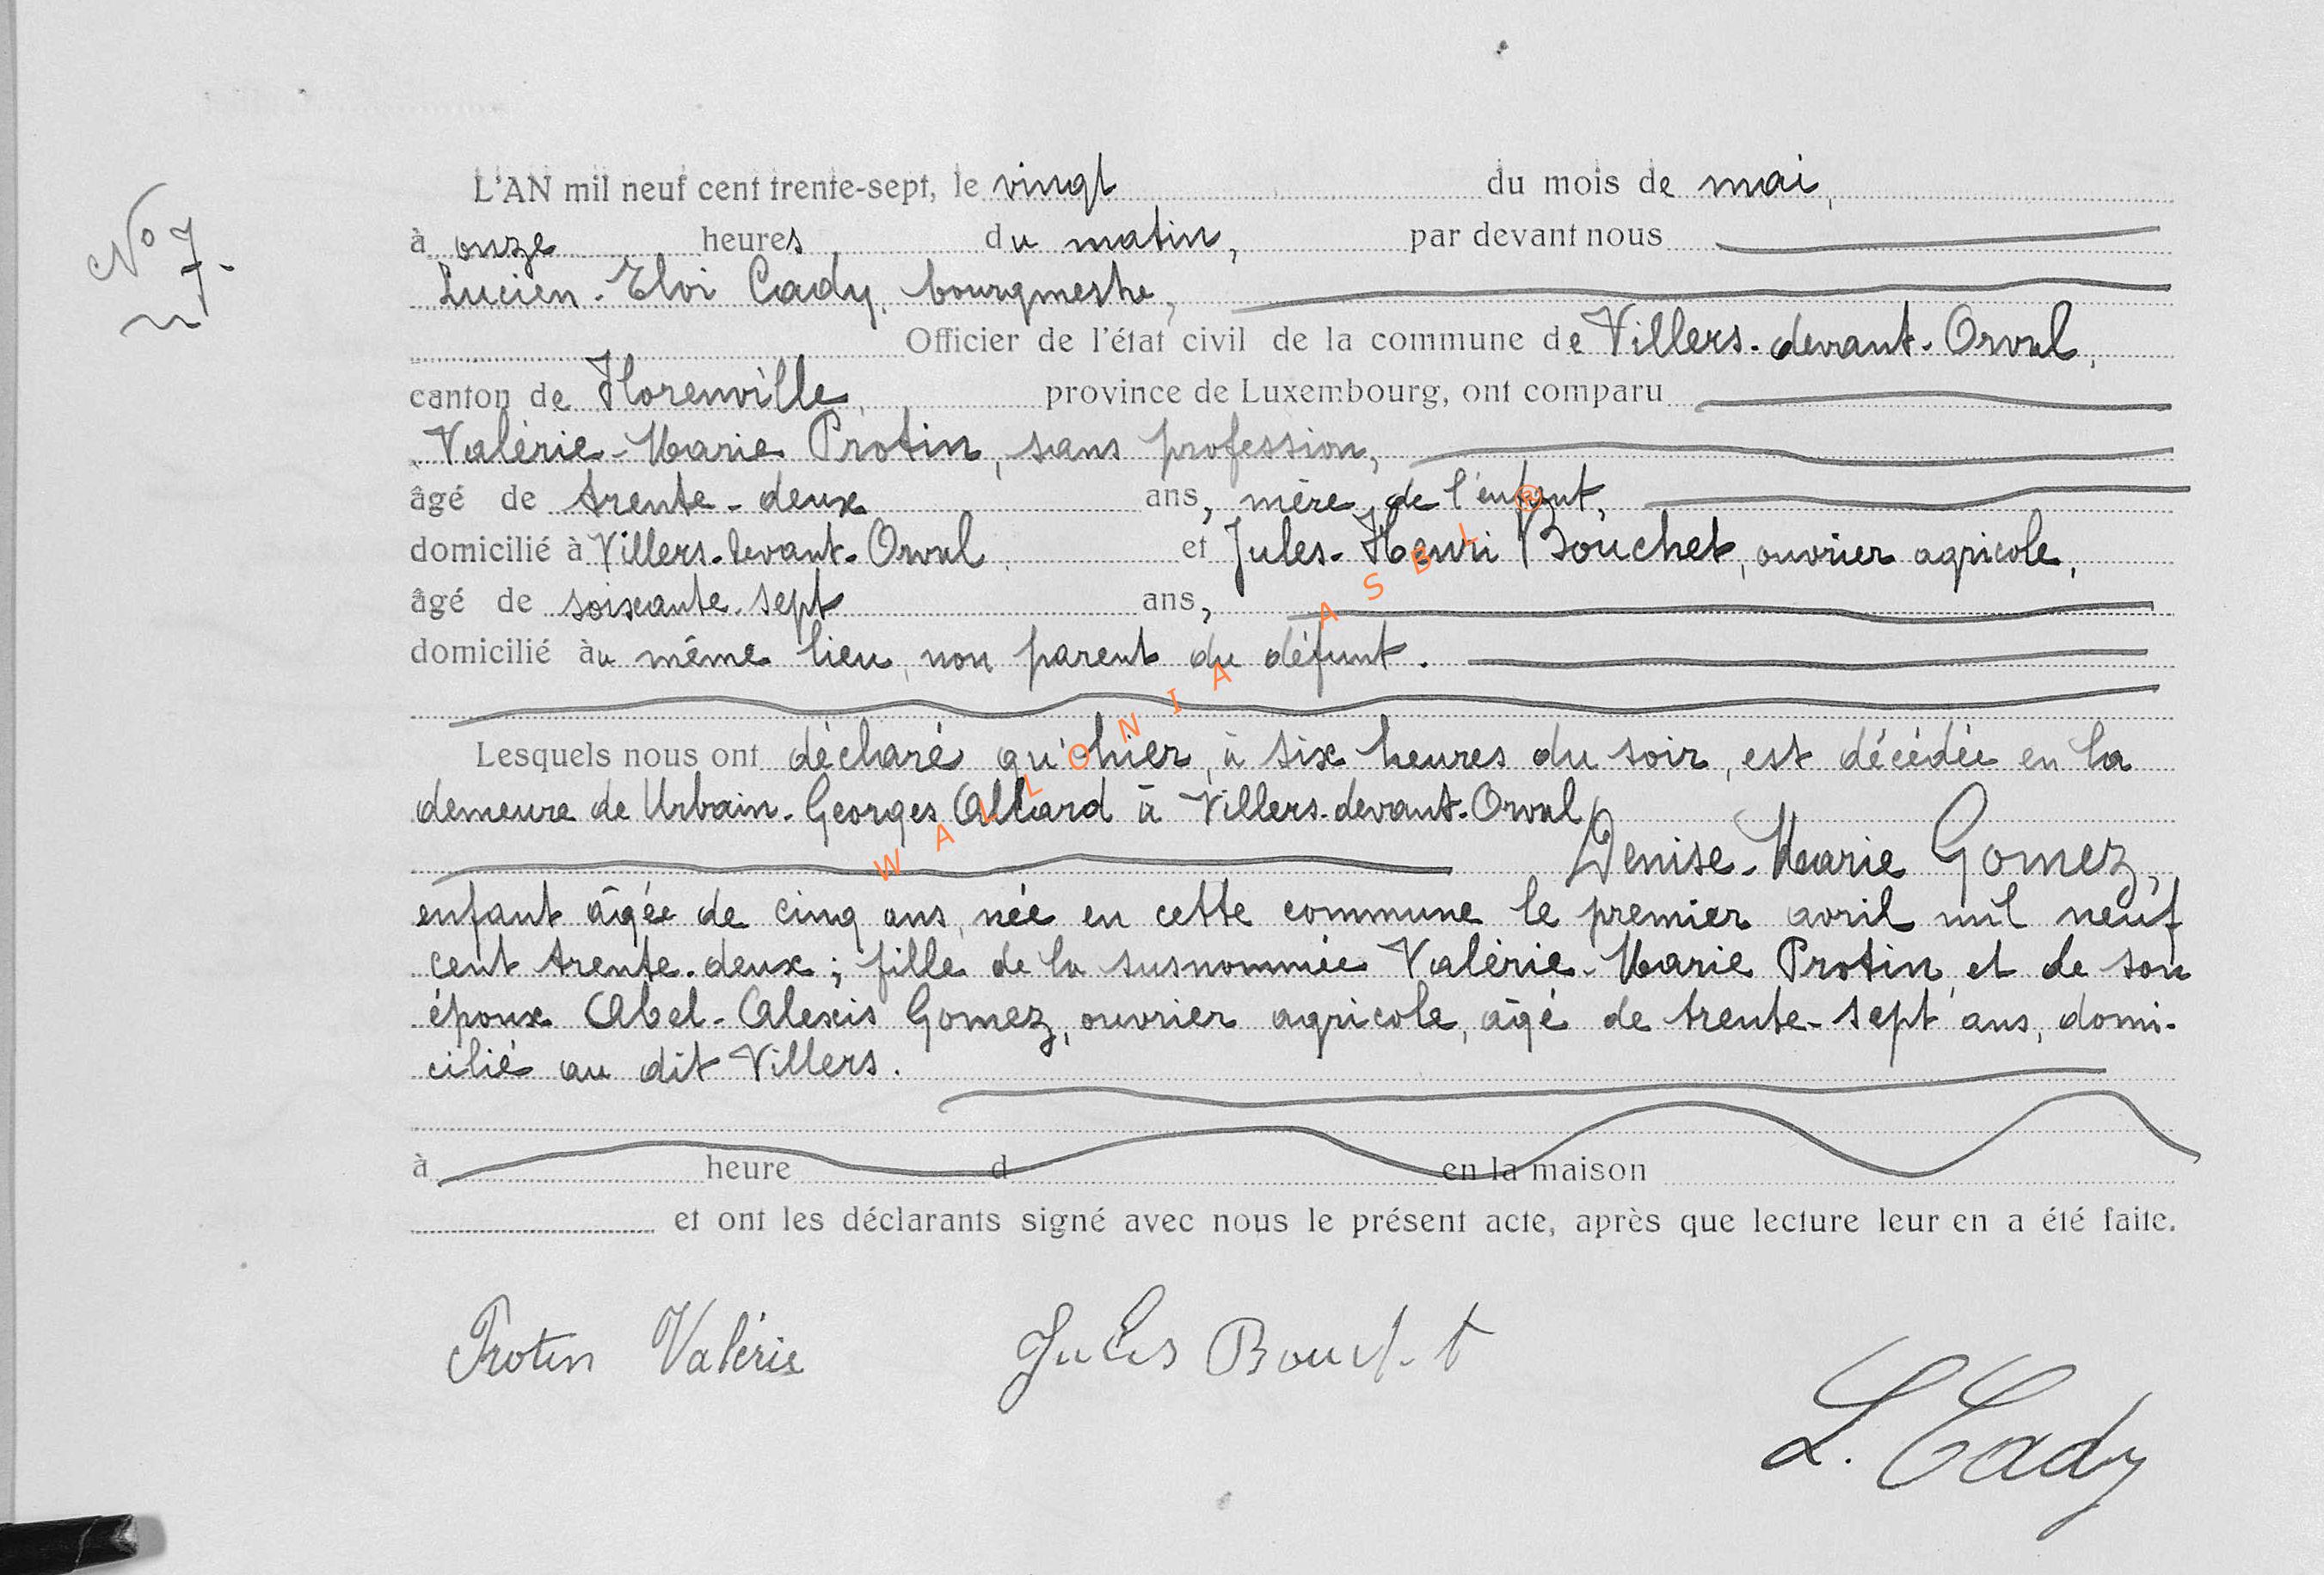 N° 7.
L'AN mil neuf cent trente-sept, le vingt du mois de mai,
à onze heures du matin, par devant nous
Lucien-Eloi Cady, bourgmestre,
Officier de l'état civil de la commune de Villers-devant-Orval,
canton de Florenville, province de Luxembourg, ont comparu
Valérie-Marie Protin, sans profession,
âgé de trente-deux ans, mère de l'enfant,
domicilié à Villers-devant-Orval, et Jules-Henri Bouchet, ouvrier agricole,
âgé de soixante-sept ans,
domicilié au même lieu, non parent du défunt.
Lesquels nous ont déclaré qu'hier, à six heures du soir, est décédée en la
demeure de Urbain-Georges Allard à Villers-devant-Orval,
Denise-Marie Gomez,
enfant âgée de cinq ans, née en cette commune le premier avril mil neuf
cent trente-deux ; fille de la susnommée Valérie-Marie Protin, et de son
époux Abel-Alexis Gomez, ouvrier agricole, âgé de trente-sept ans, domi-
cilié au dit Villers.
à heure d en la maison
et ont les déclarants signé avec nous le présent acte, après que lecture leur en a été faite.
Protin Valérie Jules Bouchet
L. Cady
WALLONIA ASBL ®